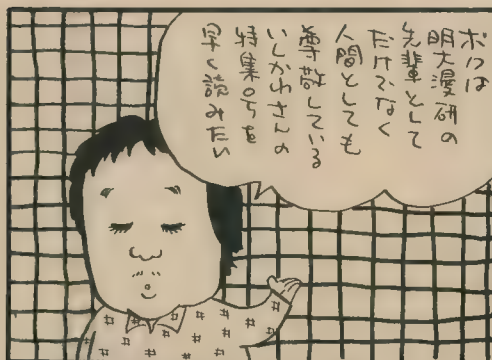 ボクは
明大漫研の
先輩として
だけでなく
人間としても
尊敬している
いしかわさんの
特集のちを
早く読みたい